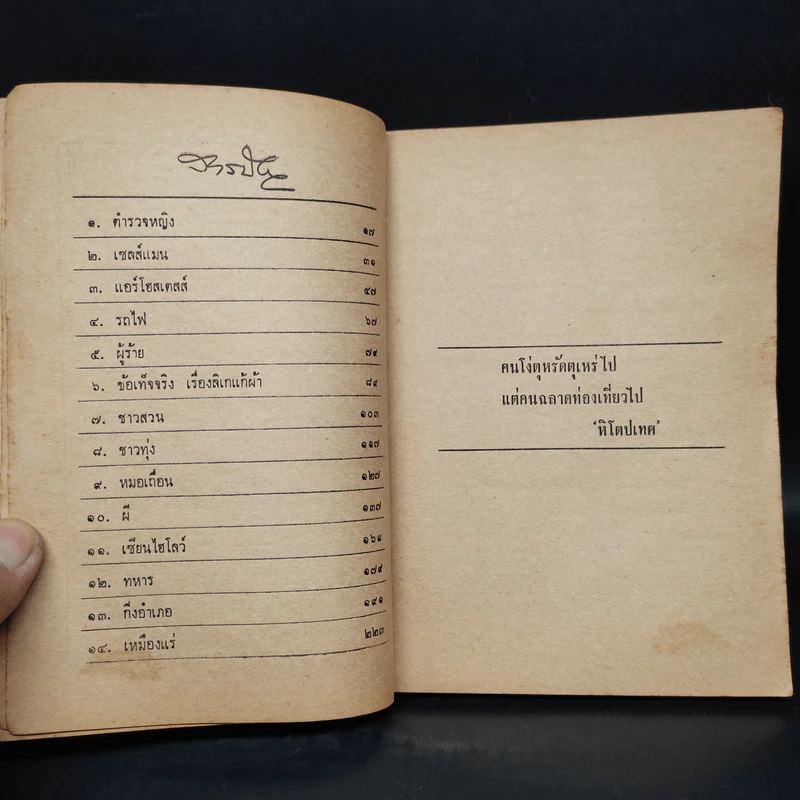 สารบัญ
๑. ตำรวจหญิง ๑๗
๒. เซลส์แมน ๓๑
๓. แอร์โฮสเตสส์ ๔๗
๔. รถไฟ ๖๗
๕. ผู้ร้าย ๗๙
๖. ข้อเท็จจริง เรื่องลิเกแก้ผ้า ๘๙
๗. ชาวสวน ๑๐๓
๘. ชาวทุ่ง ๑๑๗
๙. หมอเถื่อน ๑๒๗
๑๐. ผี ๑๓๗
๑๑. เซียนไฮโลว์ ๑๖๑
๑๒. ทหาร ๑๗๙
๑๓. กิ่งอำเภอ ๑๙๑
๑๔. เหมืองแร่ ๒๒๓
คนโง่ตุหรัดตุเหร่ไป
แต่คนฉลาดท่องเที่ยวไป
'หิโตปเทศ'